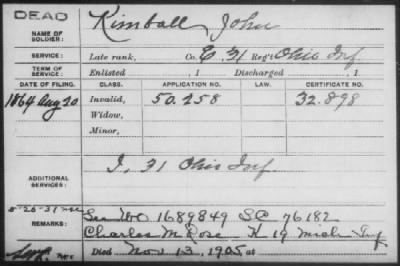 DEAD
NAME OF SOLDIER: Kimball, John
SERVICE: Late rank, Co. E, 31 Reg't Ohio Inf
TERM OF SERVICE: Enlisted , 1 Discharged , 1
DATE OF FILING. CLASS. APPLICATION NO. LAW. CERTIFICATE NO.
1864 Aug 20 Invalid, 50.258 32.898
Widow,
Minor,
ADDITIONAL SERVICES: I, 31 Ohio Inf
REMARKS: See WO 1689849 SC 76182
Charles M Rose K 19 Mich Inf
Died Nov 13, 1905, at